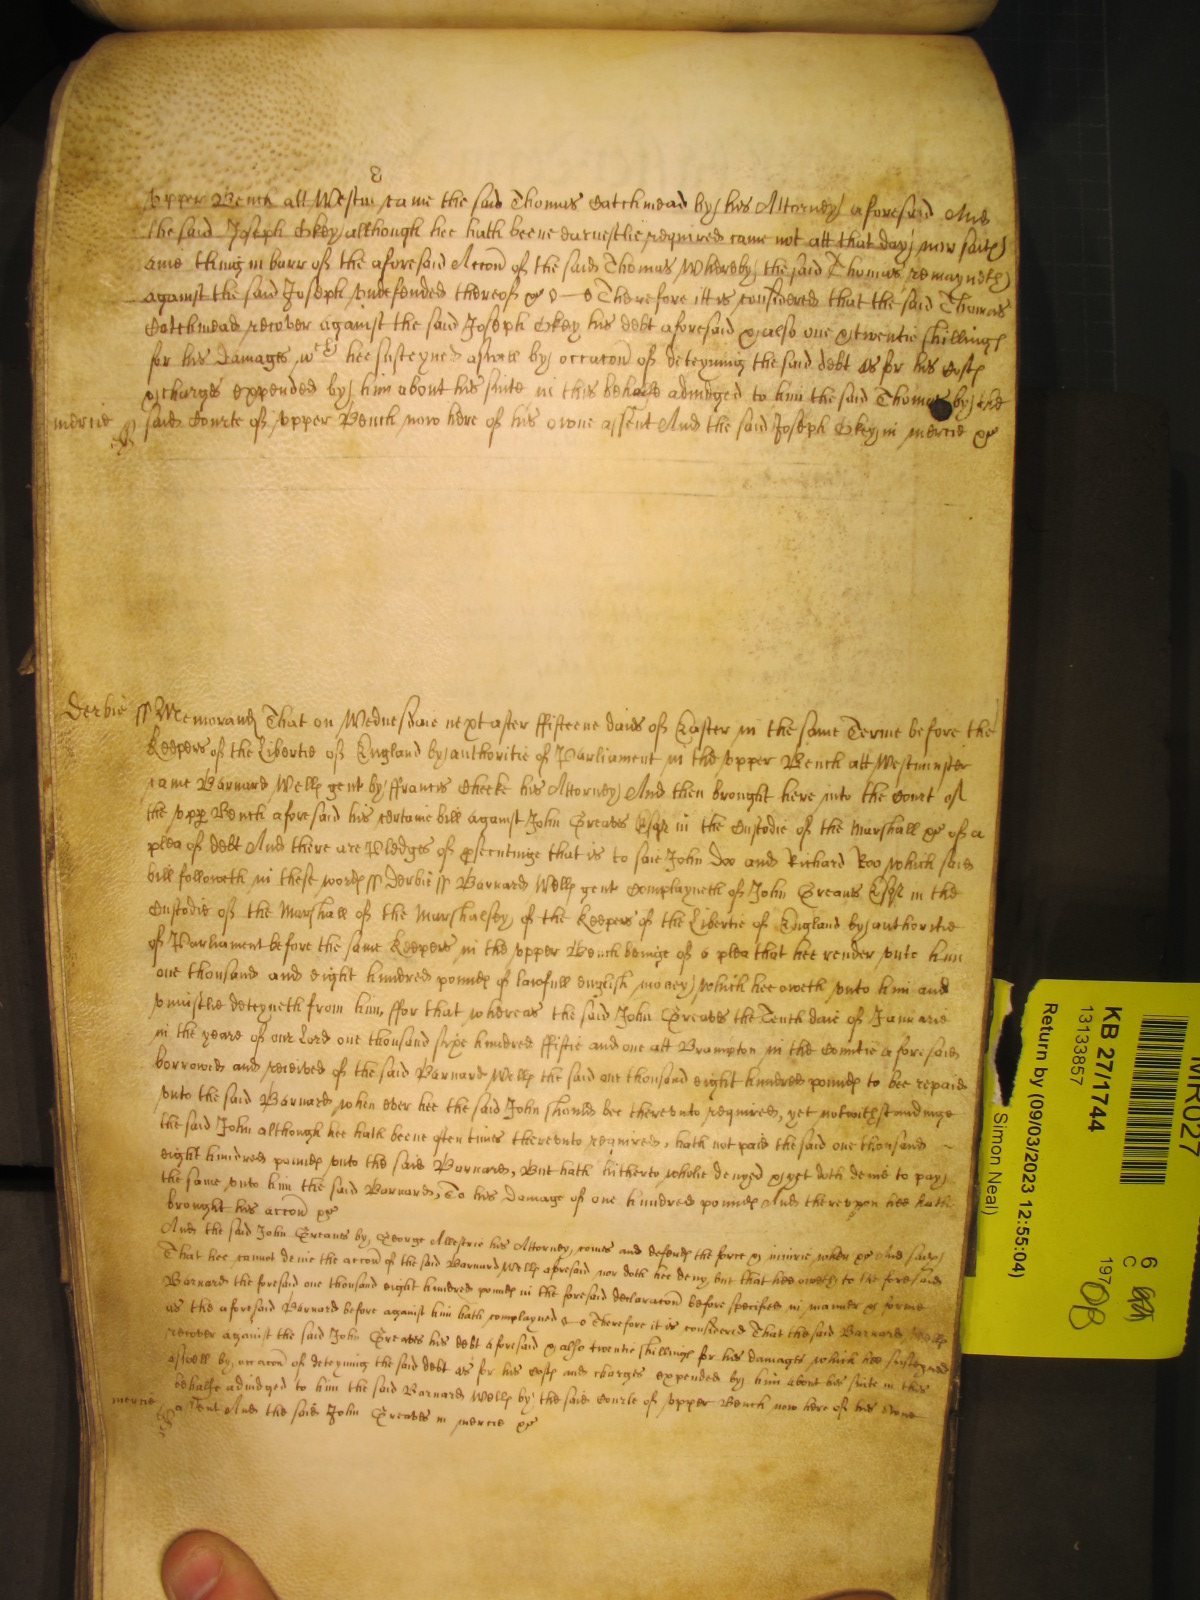 upper Bench att Westm came the said Thomas Catchmead by his Attorney aforesaid And
the said Joseph Okey although hee hath beene earnestlie required came not att that day nor saith
anie thing in barr of the aforesaid Accon of the said Thomas Whereby the said Thomas remayneth
against the said Joseph undefended thereof &c Therefore itt is considered that the said Thomas
Catchmead recover against the said Joseph Okey his debt aforesaid & also one & twentie shillings
for his damages wch hee susteyned aswell by occacon of deteyning the said debt as for his costs
& charges expended by him about his suite in this behalfe adiudged to him the said Thomas by the
mercie said Courte of upper Bench now here of his owne assent And the said Joseph Okey in mercie &c
Derbie ss Memorand That on Wednesdaie next after ffifteene daies of Easter in the same Terme before the
Keepers of the Libertie of England by authoritie of Parliament in the upper Bench att Westminster
came Barnard Wells gent by ffrancis Cheeke his Attorney And then brought here into the Court of
the upp Bench aforesaid his certaine bill against John Greaves Esqr in the Custodie of the Marshall &c of a
plea of debt And there are Pledges of psecutinge that is to saie John Doo and Richard Roo which said
bill followeth in these words ss Derbie ss Barnard Wells gent Complayneth of John Greaves Esqr in the
Custodie of the Marshall of the Marshalsey of the Keepers of the Libertie of England by authoritie
of Parliament before the same Keepers in the upper Bench beinge of a plea that hee render unto him
one thousand and eight hundred pounds of lawfull english money which hee oweth unto him and
uniustlie deteyneth from him, ffor that whereas the said John Greaves the Tenth daie of Januarie
in the yeare of our Lord one thousand sixe hundred ffiftie and one att Brampton in the Countie aforesaid
borrowed and received of the said Barnard Wells the said one thousand eight hundred pounds to bee repaid
unto the said Barnard when ever hee the said John should bee thereunto required, yet notwithstandinge
the said John although hee hath beene often times thereunto required, hath not paid the said one thousand
eight hundred pounds unto the said Barnard, But hath hitherto wholie denyed & yet doth denie to pay
the same unto him the said Barnard, To his Damage of one hundred pounds And thereupon hee hath
brought his accon &c
And the said John Greaves by George Allestrie his Attorney, comes and defends the force & iniurie when &c And saith
That hee cannot denie the accon of the said Barnard Wells aforesaid nor doth hee deny, but that hee oweth to the foresaid
Barnard the foresaid one thousand eight hundred pounds in the foresaid declaracon before specified in manner & forme
as the aforesaid Barnard before against him hath complayned Therefore it is considered That the said Barnard Wells
recover against the said John Greaves his debt aforesaid & also twentie shillings for his damages which hee susteyned
aswell by occacon of deteyning the said debt as for his Costs and charges expended by him about his suite in this
behalfe adiudged to him the said Barnard Wells by the said Courte of upper Bench now here of his owne
mercie assent And the said John Greaves in mercie &c
MR027
KB 27/1744
13133857
Return by (09/03/2023 12:55:04)
Simon Neal)
6
C
197